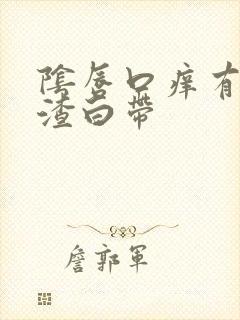 陰唇口痒有
渣白帶
詹郭軍